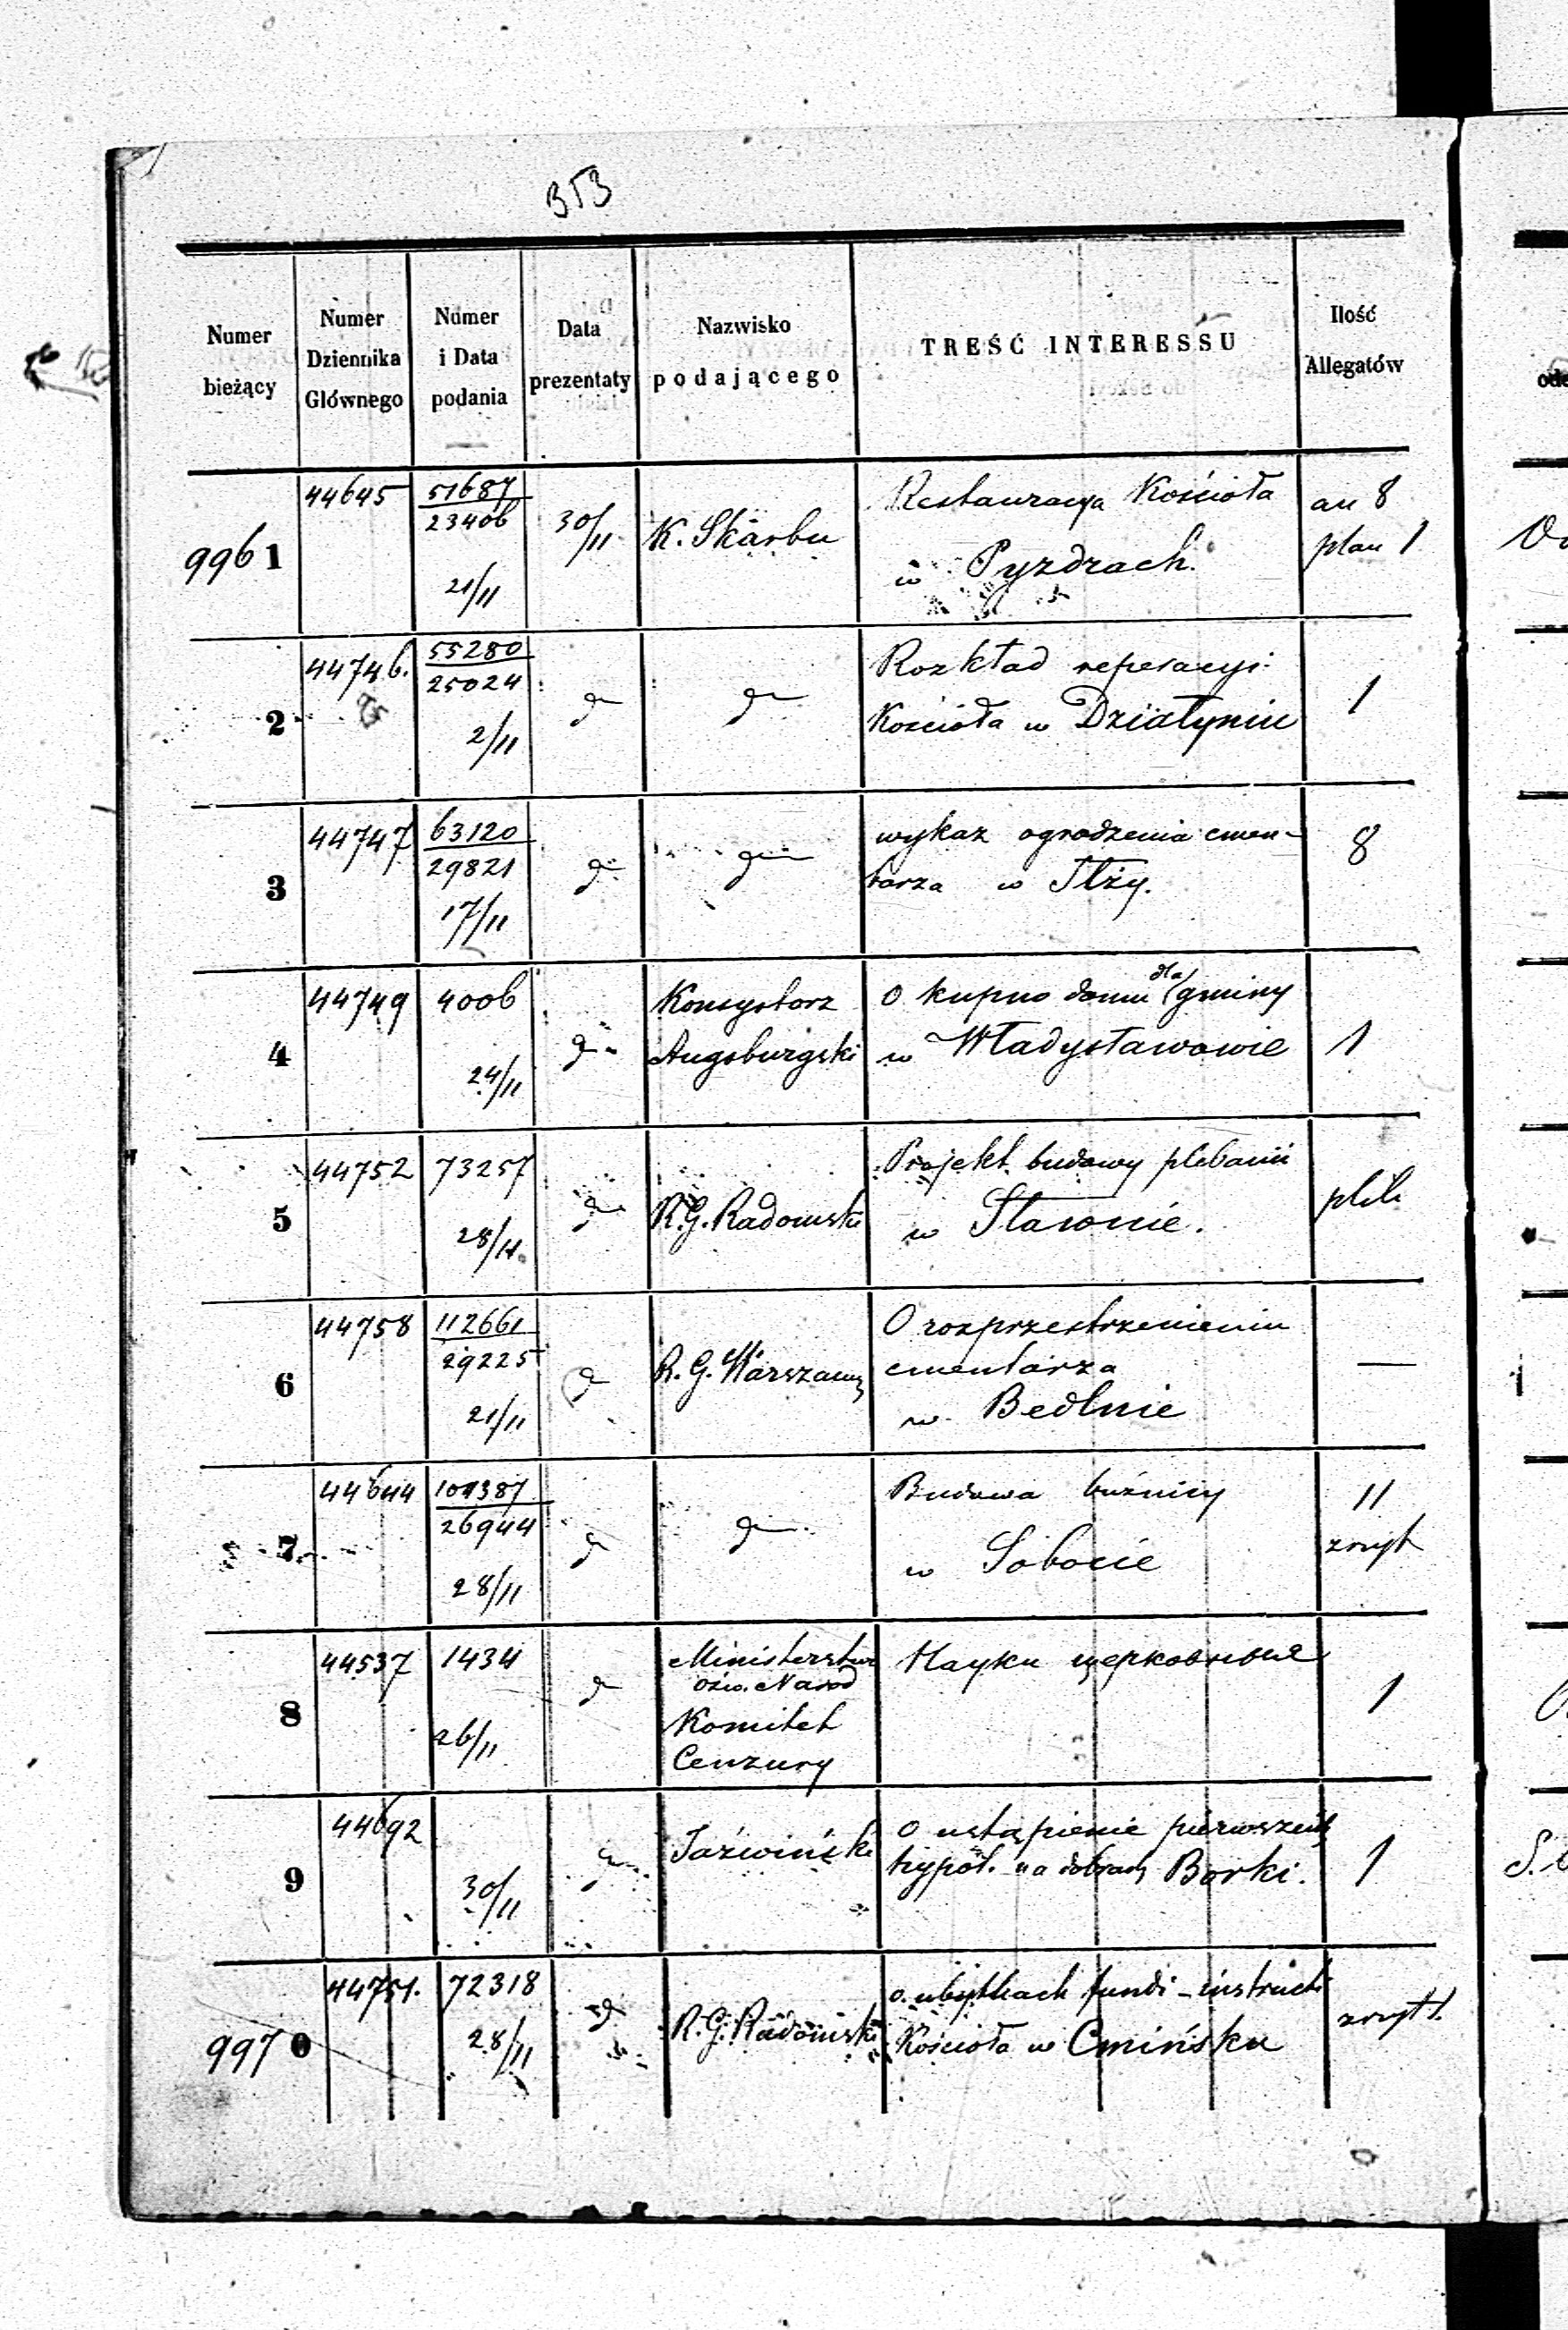 353
Numer bieżący
Numer Dziennika Głównego
Numer i Data podania
Data prezentaty
Nazwisko podającego
TREŚĆ INTERESSU
Ilość Allegatów
9961
44645
51687
23406
21/11
30/11
K. Skarbu
Restauracya Kościoła
w Pyzdrach.
an 8
plan 1
2
44746.
55280
25024
2/11
d
d
Rozkład reperacyi
Kościoła w Działyniu
1
3
44747
63120
29821
17/11
d
d
wykaz ogrodzenia cmen-
tarza w Iłży.
8
4
44749
4006
24/11
d
Konsystorz
Augsburgski
O kupno domu dla gminy
w Władysławowie
1
5
44752
73257
28/11.
d
R.G. Radomski
Projekt budowy plebanii
w Sławnie.
6
44758
112661
29225
21/11
d
R. G. Warszaws
O rozprzestrzenieniu
cmentarza
w Bedlnie
—
7
44644
26944
28/11
d
d
Budowa bużnicy
w Sobocie
11
zwyt
8
44537
1434
26/11
d
Ministerstwo
Ośw. Narod
Komitet
Cenzury
Науки церковныя
1
9
44692
30/11
d
Jaźwińsk
O ustąpienie pierwszeńs
hypot. na dobrach Borki.
1
9970
44751.
72318
28/11
d
R. G. Radomski
o ubytkach fundi-instructi
Kościoła w Cmińsku